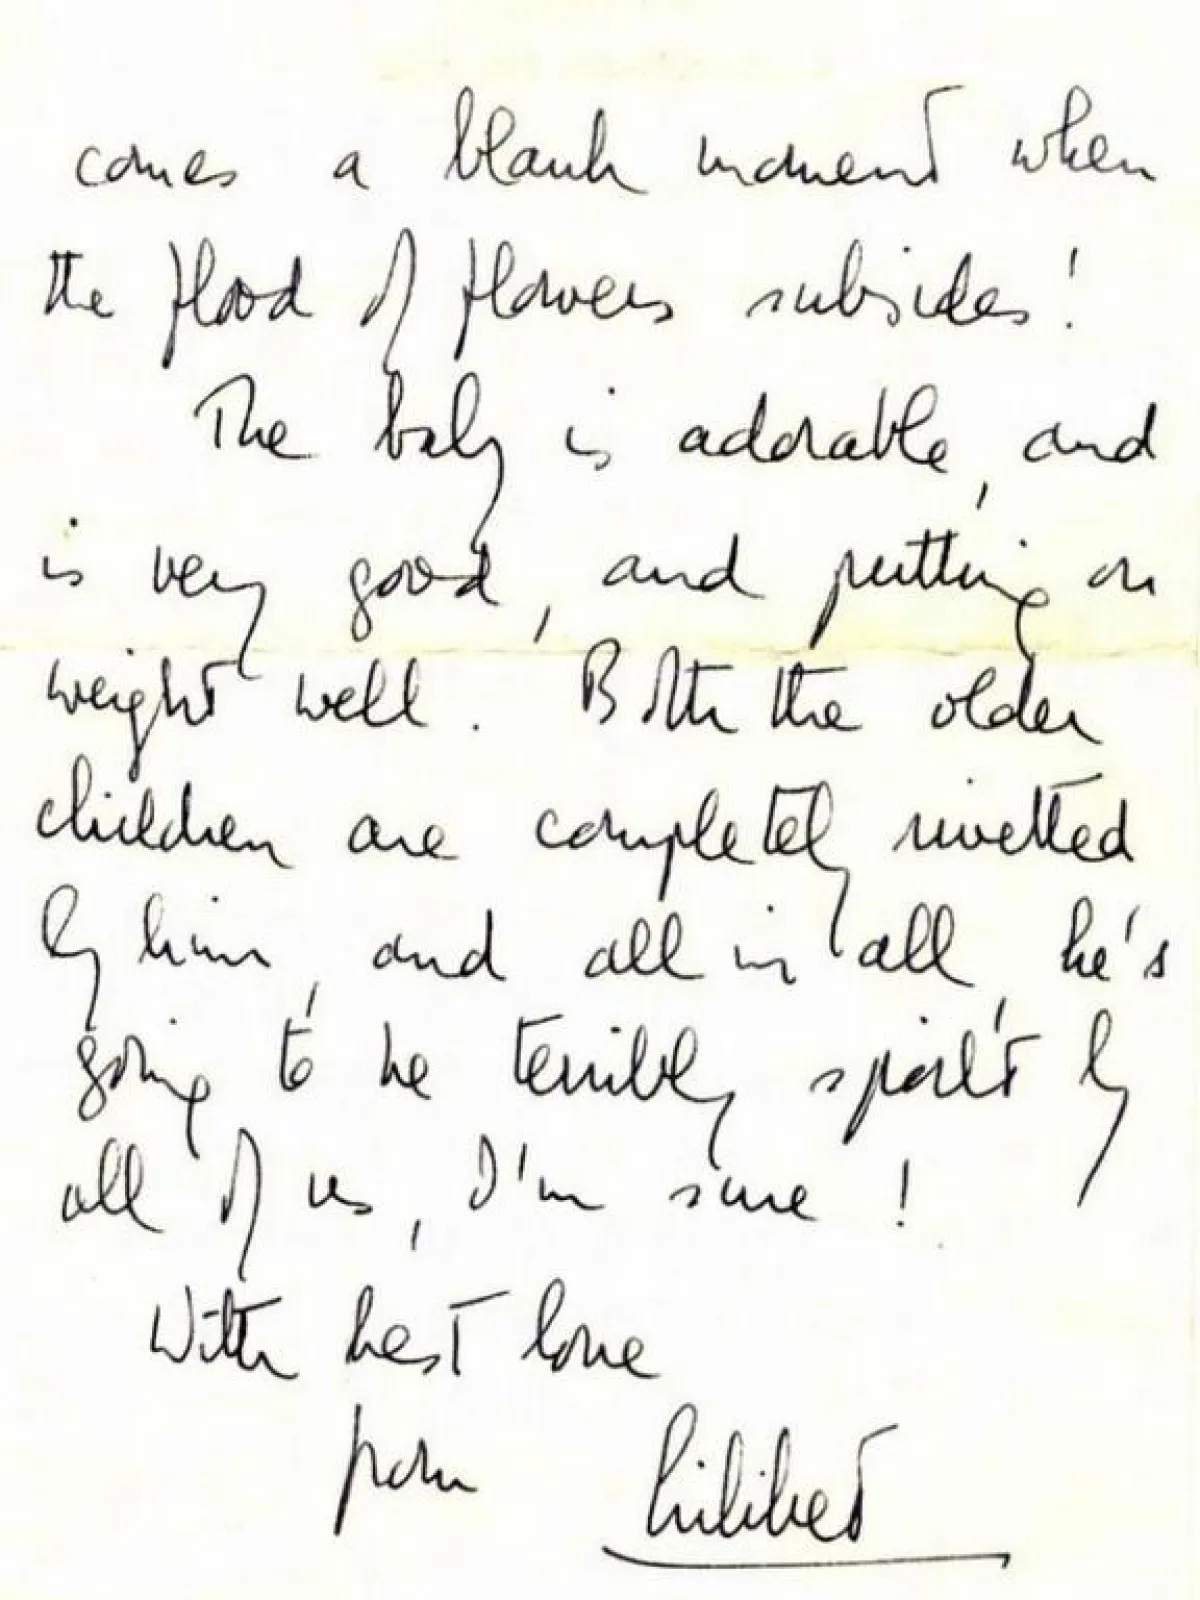 comes a blank moment when
the flood of flowers subsides!
The baby is adorable, and
is very good, and putting on
weight well. Both the older
children are completely rivetted
by him, and all in all, he's
going to be terribly spoilt by
all of us, I'm sure!
With best love
from Lilibet